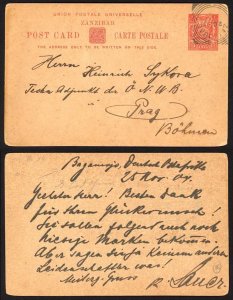 UNION POSTALE UNIVERSELLE
ZANZIBAR
POST CARD CARTE POSTALE
THE ADDRESS ONLY TO BE WRITTEN ON THIS SIDE.
Herrn Heinrich Sykora
Adjunkt der Ö.N.W.B
Prag
Böhmen
Bagamojo, Deutsch Ostafrika
25 Nov. 04.
Geehrter Herr! Besten Dank
für Ihren Glückwunsch!
Sie sollen folgend auch noch
hiesige Marken bekommen
Aber sagen Sie keinem anderen
Leidenschafter was!